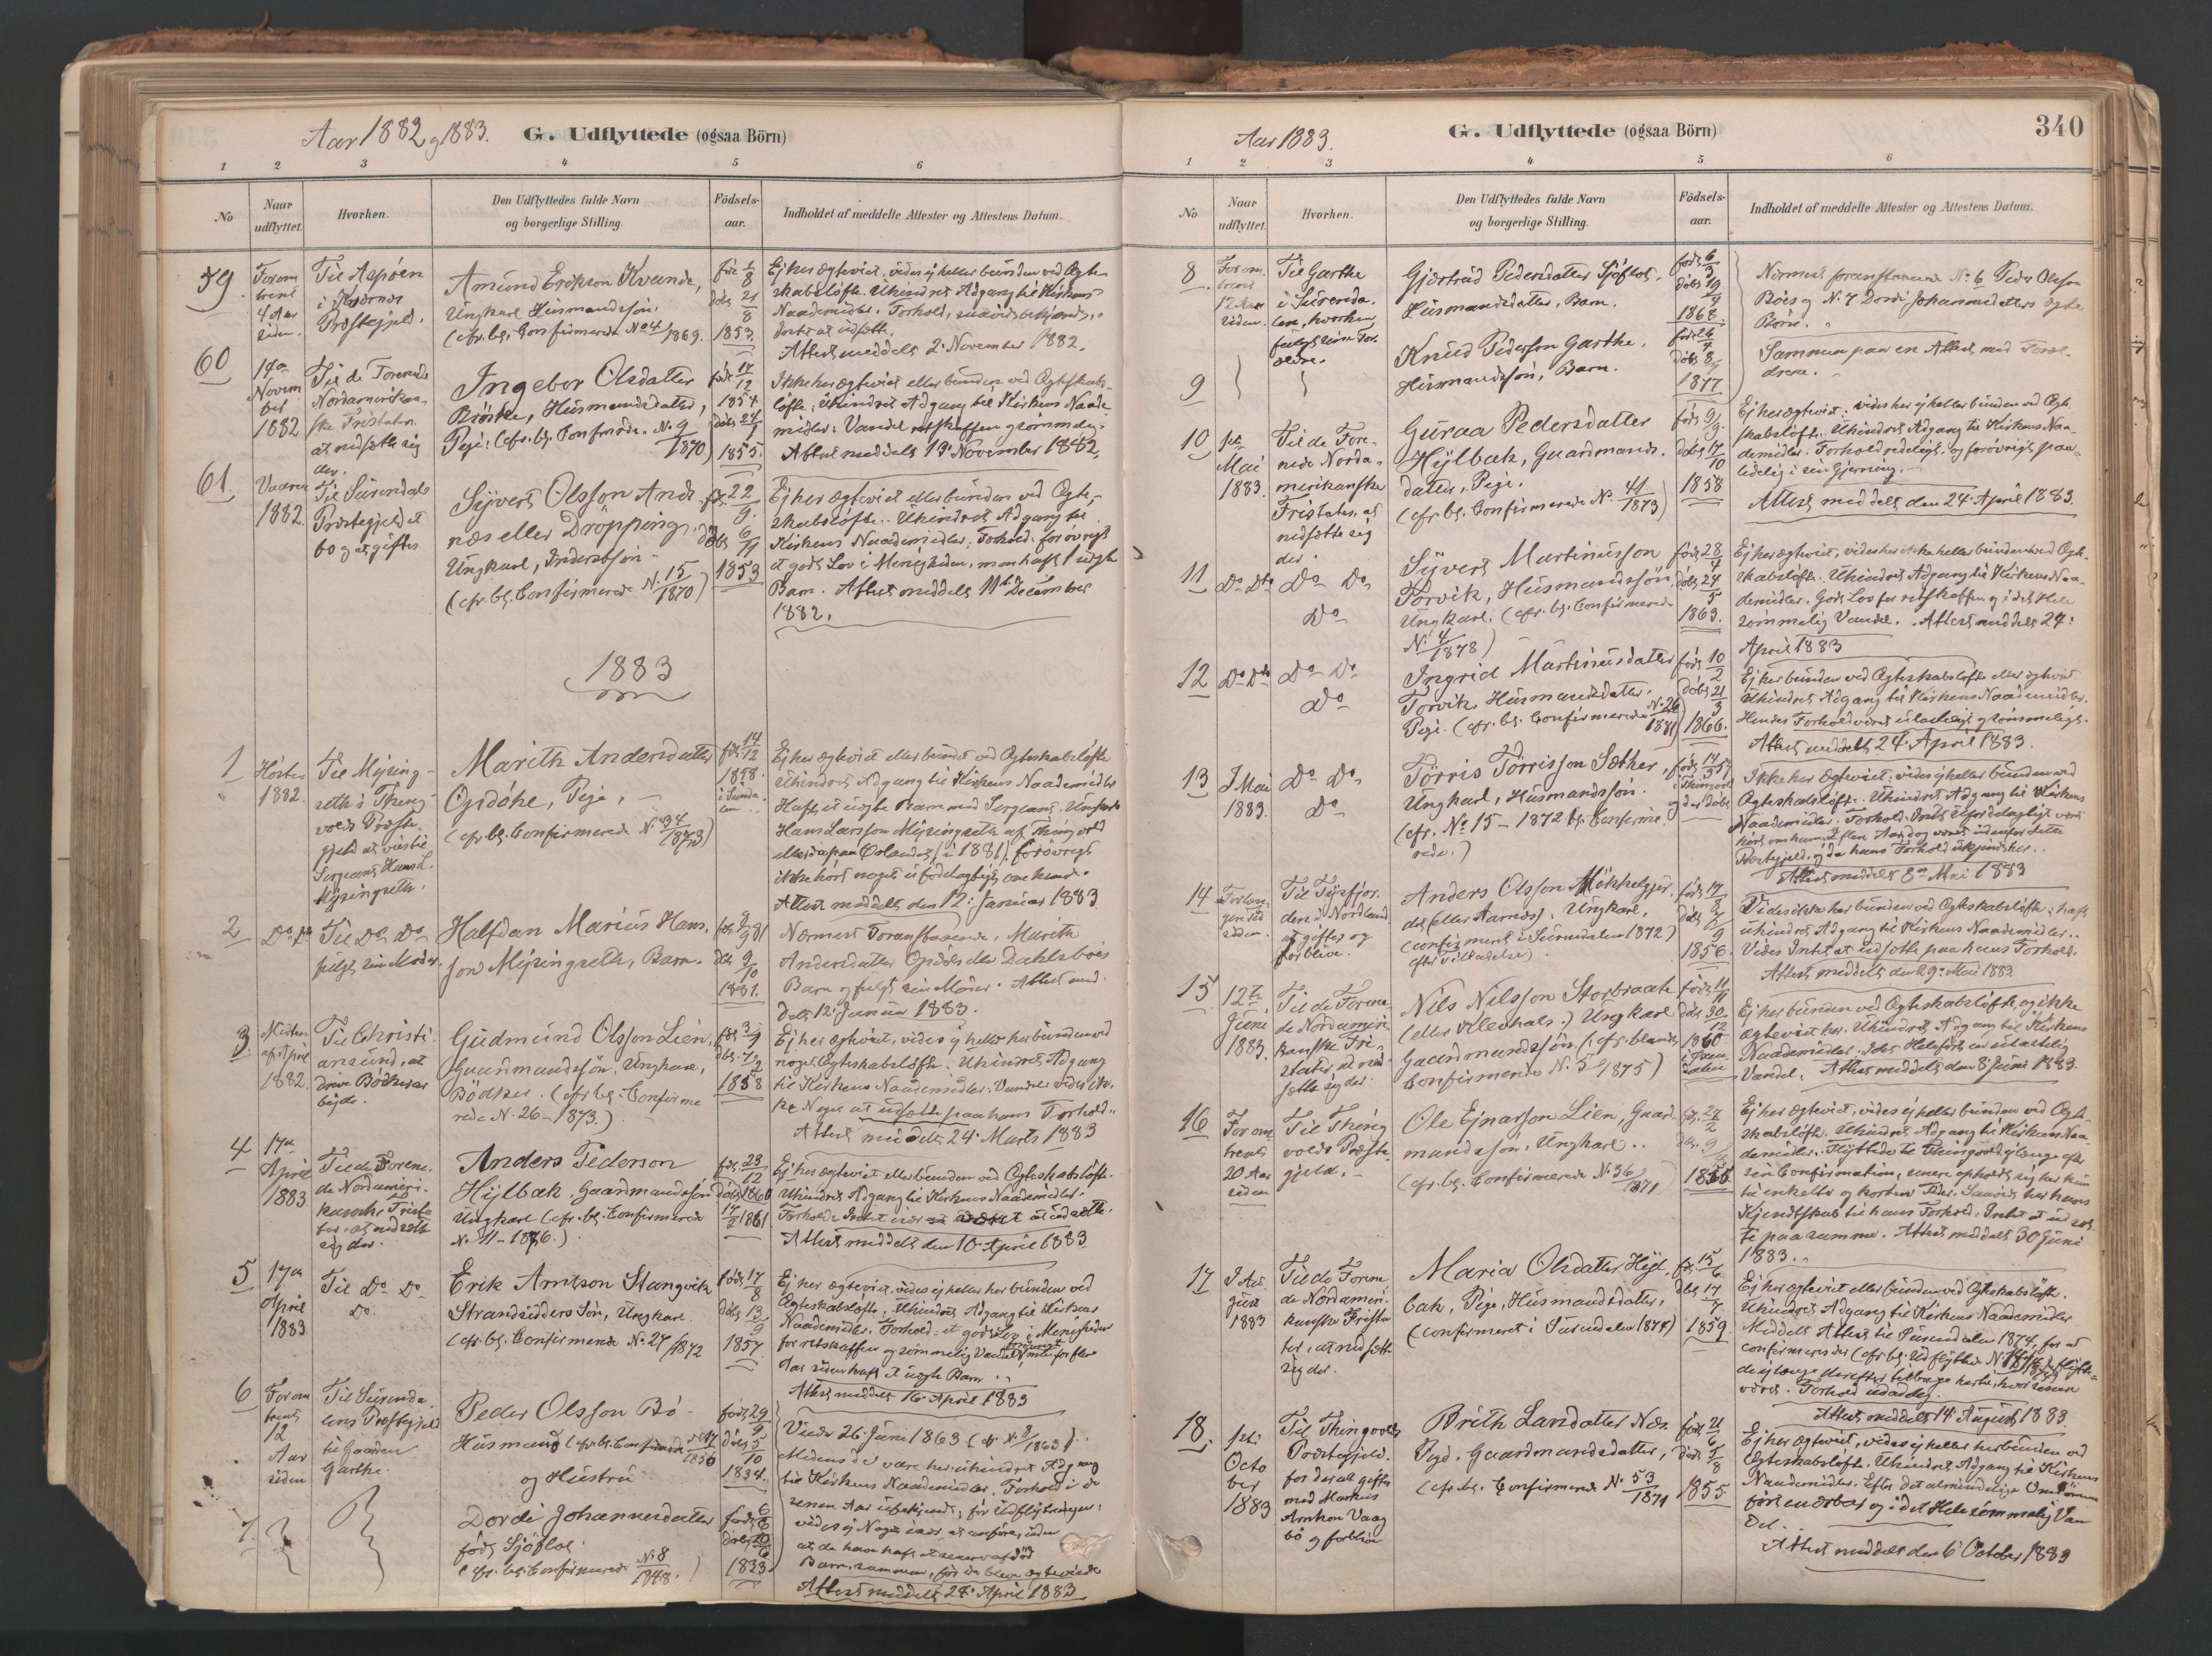 Aar 1882 og 1883.
G. Udflyttede (ogsaa Börn)
1 2 3 4 5 6
No
Naar udflyttet.
Hvorhen.
Den Udflyttedes fulde Navn og borgerlige Stilling.
Födsels-aar.
Indholdet af meddelte Attester og Attestens Datum.
59.
For om
trent
4 Aar
siden.
Til Aspöen
i
Præstegjeld.
Amund Erikson Kvande,
Ungkarl Husmandssön,
(cfr. bl. Confirmerede No 24/1869.
1853.
Ej her ægteviet, vides ej heller bunden ved Ægte-
skabslöfte. Uhindret Adgang til Kirkens
Naademidler. Forhold,
Attest meddelt 2. November 1882.
60
14de
Novem
ber
1882
Til de Forenede
Nordamerikan-
ske Fristater
at nedsætte sig
der.
Ingebor Olsdatter
Brøske, Husmandsdatter,
Pige. (cfr. bl. Confirmerede. No 9/1870)
född 17/12
1854
1855.
Ikke her ægteviet eller bunden ved Ægteskabs-
löfte; Uhindret Adgang til Kirkens Naade-
midler. Vandel retskaffen og sömmelig.
Attest meddelt 19. November 1882.
61.
Vaaren
1882.
Til Surendals
Præstegjeld at
bo og at giftes
Syvert Olsson And-
næs eller Dröpping
Ungkarl, Inderstsön
(cfr. bl. Confirmerede No. 15/1870)
föd. 22/9.
1853
Ej her ægteviet eller bunden ved Ægte-
skabslöfte. Uhindret Adgang til
Kirkens Naademidler. Forhold: forövrigt
et godt Lov i Menigheden, men haft 1 uægte
Barn. Attest meddelt 11te December
1882.
1883
1
Hösten
1882.
Til Myring-
seth i Thing-
volds Præste-
gjeld at vies til
Sergeant Hans L.
Marith Andersdatter
Opdöhl, Pige,
(cfr. bl. Confirmerede No 34/1873)
född 14/12
1858.
i Surnda-
len
Ej her ægteviet eller bundet ved Ægteskabslöfte
Uhindret Adgang til Kirkens Naademidler
Haft et uægte Barn med Sergeant, Ungkarl
Hans Larsson af Thingvold
i 1881, forövrigt
ikke hört noget ufordelagtigt om hende.
Attest meddelt den 12. Januar 1883
2
Do Do
Til Do Do
fulgt sin Moder.
Halfdan Marius Hans-
son, Barn.
1881.
Nærmest Foranstaaende, Marith
Andersdatter Opdöls eller Dahlsbøs
Barn og fulgt sin Moder. Attest med-
delt 12. Januar 1883.
3
Midten
af April
1882.
Til Christi-
ansund, at
drive Bödkerar
bejde.
Gudmund Olsson Lien,
Gaardmandssön, Ungkarl,
Bödker. (cfr. bl. Confirme
rede No. 26–1873.)
1858
Ej her ægteviet, vides ej heller her bunden ved
noget Ægteskabslöfte. Uhindret Adgang
til Kirkens Naademidler. Vandel: vides ik-
ke Noget at udsætte paa hans Forhold.
Attest meddelt 24. Marts 1883
4
17de
April
1883
Til de Forene-
de Nordameri-
kanske Frista
ter, at nedsætte
sig der.
Anders Pederson
Hylbak, Gaardmandssön
Ungkarl (cfr. bl. Confirmerede
No. 11–1876.)
föd. 23/12
1860
1861
Ej her ægteviet eller bunden ved Ægteskabslöfte.
Uhindret Adgang til Kirkens Naademidler.
Forhold: Intet at udsætte.
Attest meddelt den 10. April 1883
5
17de
April
1883
Til Do Do
Do.
Erik Arntson Stangvik
Strandsidders Sön, Ungkarl
(cfr. bl. Confirmerede No. 27/1872
född 17/8
döbt 13/9
1857
Ej her ægteviet, vides ej heller her bunden ved
Ægteskabslöfte. Uhindret Adgang til Kirkens
Naademidler. Forhold: et godt Lov i Menigheden
for retskaffen og sömmelig Vandel, men for flere
Aar siden haft et uægte Barn.
Attest meddelt 16. April 1883
6
For om
trent
12
Aar
siden
Til Surenda
lens Præstegjeld
til Gaarden
Garthe.
Peder Olsson Bö-
Husmand (cfr. bl. Confirmerede
og Hustru
född 29/9
döbt 5/10
1834.
Viede 26. Juni 1863 (cfr. No 8/1863).
Medens de vare her uhindret Adgang
til Kirkens Naademidler. Forhold i de
senere Aar ubekjendt; för Udflytningen:
vides ej Noget andet at anföre, uden
at de have haft et senere afdöd
Barn sammen, för de bleve ægteviede
Attest meddelt 24. April 1883
7.
Dordi Johannesdatter
född Sjöflot.
(cfr. bl. Confirmerede No. 8/1848.)
1833
Aar 1883.
G. Udflyttede (ogsaa Börn)
340
1 2 3 4 5 6
No
Naar udflyttet.
Hvorhen.
Den Udflyttedes fulde Navn og borgerlige Stilling.
Födsels-aar.
Indholdet af meddelte Attester og Attestens Datum.
8.
For om-
trent
12 Aar
siden.
Til Garthe
i Surenda-
len, hvorhen
fulgt sine For-
ældre.
Gjertrud Pedersdatter Sjöflot,
Husmandsdatter, Barn.
1868.
Nærmest foranstaaende No. 6 Peder Olsson
Böes og No. 7 Dordi Johannesdatters ægte
Börn.
9
Knud Pedersson Garthe,
Husmandssön, Barn.
1877
Sammen paa en Attest med Foræl-
drene.
10
1ste
Mai
1883.
Til de Fore-
nede Norda-
merikanske
Fristater, at
nedsætte sig
der.
Guraa Pedersdatter
Hylbak, Gaardmands-
datter, Pige.
(cfr. bl. Confirmerede No. 41/1873)
född 9/9.
döbt 17/10
1858
Ej her ægteviet; vides her ej heller bunden ved Ægte
skabslöfte. Uhindret Adgang til Kirkens Naa-
demidler. Forhold redeligt, og forövrigt paa-
lidelig i sin Gjerning.
Attest meddelt den 24. April 1883.
11
Do Do
Do Do
Do
Syvert Martinusson
Torvik, Husmandssön,
Ungkarl. (cfr. bl. Confirmerede
No. 4/1878)
född 28/4
döbt 24/5
1863.
Ej her ægteviet, vides her ikke heller bunden ved Ægte-
skabslöfte. Uhindret Adgang til Kirkens Naa-
demidler. Godt Lov for retskaffen og i det Hele
sömmelig Vandel. Attest meddelt 24.
April 1883
12
Do Do
Do Do
Do
Ingrid Martinusdatter
Torvik, Husmandsdatter.
Pige. (cfr. bl. Confirmerede No. 26/1881)
född 10/2
döbt 21/3
1866.
Ej her bunden ved Ægteskabslöfte eller ægteviet
Uhindret Adgang til Kirkens Naademidler.
Hendes Forhold været ulasteligt og sömmeligt.
Attest meddelt 24. April 1883.
13
Mai
1883.
Do Do
Do
Törris Törrisson Sæther,
Ungkarl, Husmandssön.
(cfr. No 15–1872 bl. Confirme
rede.)
i Thingvold
og der döbt
Ikke her ægteviet; vides ej heller bunden ved
Ægteskabslöfte. Uhindret Adgang til Kirkens
Naademidler. Forhold: Intet ufordelagtigt været
hört om ham, i flere Aar dog været udenfor dette
Præstegjeld, og da hans Forhold ukjendt her.
Attest meddelt 8de Mai 1883
14
siden.
Til Tysfjor-
den i Nordland
at giftes og
forblive.
Anders Olsson
det (eller Aarnes), Ungkarl,
(confirmeret i Surendalen 1872)
1856.
Vides ikke her bunden ved Ægteskabslöfte; haft
uhindret Adgang til Kirkens Naademidler.
Vides Intet at udsætte paa hans Forhold.
Attest meddelt den 29. Mai 1883
15
12te
Juni
1883.
Til de Forene-
de Nordameri
kanske Fri-
stater, at ned
sætte sig der.
Nils Nilsson Storbraate
Ungkarl
Gaardmandssön (cfr. blandt
Confirmerede No. 5/1875)
född 11/11
döbt 30/12
1860
Ej her bunden ved Ægteskabslöfte, og ikke
ægteviet her. Uhindret Adgang til Kirkens
Naademidler. I det Hele fört en ulastelig
Vandel. Attest meddelt den 8. Juni 1883.
16
For om
trent
20 Aar
siden
Til Thing
volds Præste-
gjeld.
Ole Ejnarson Lien, Gaard-
mandssön, Ungkarl.
(cfr. bl. Confirmerede No. 36/1871)
Ej her ægteviet, vides ej heller bunden ved Ægte-
skabslöfte. Uhindret Adgang til Kirkens Naa-
demidler. Flyttede til Thingvold ej længe efter
sin Confirmation, senere opholdt sig her kun
til enkelte og korte Tider. Saavidt her haves
Kjendtskab til hans Forhold, Intet at udsæt-
te paa samme. Attest meddelt 30 Juni
1883.
17
Au-
gust
1883
Til de Forene
de Nordameri-
kanske Frista
ter, at nedsætte
sig der.
Maria Olsdatter Hyl-
bak, Pige, Husmandsdatter,
(confirmeret i Surendalen 1874)
föd. 15/6.
döbt 17/7
1859.
Ej her ægteviet eller bunden ved Ægteskabslöfte.
Uhindret Adgang til Kirkens Naademidler
Meddelt Attest til Surendalen 1874, for at
confirmeres der (cfr. bl. Udflyttede
des længe derefter tilbage hertil, hvor senere
været. Forhold udadlig.
Attest meddelt 14. August 1883.
18.
1ste
Octo
ber
1883
Til Thingvolds
Præstegjeld.
for der at giftes
med Markus
Arnkon Vaag
bö og forblive
Brith Larsdatter Næs.
Pige, Gaardmandsdatter,
(cfr. bl. Confirmerede No. 53/1871
1855.
Ej her ægteviet, vides ej heller her bunden ved
Ægteskabslöfte. Uhindret Adgang til Kirkens
Naademidler. Efter det almindelige Omdömme
fört en ærbar og i det Hele sömmelig Van
del.
Attest meddelt den 6. October 1883